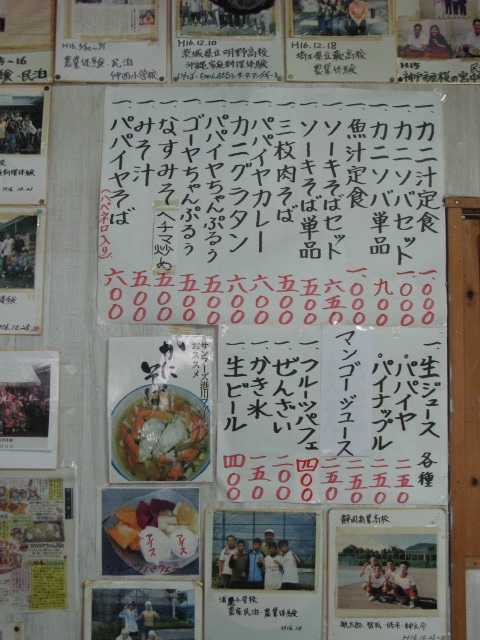 H16.12.10
茨城県立明野高校
沖縄家庭料理体験
H16.12.18
埼玉県立蕨高校
農業体験
H15
農業体験・民泊
仲西小学校
一、カニ汁定食 一、〇〇〇
一、カニソバセット 一、〇〇〇
一、カニソバ単品 九〇〇
一、魚汁定食 一、〇〇〇
一、ソーキそばセット 六五〇
一、ソーキそば単品 五〇〇
一、三枚肉そば 五〇〇
一、パパイヤカレー 六〇〇
一、カニグラタン 六〇〇
一、パパイヤちゃんぷるぅ 五〇〇
一、ゴーヤちゃんぷるぅ 五〇〇
一、なすみそ ヘチマ炒め 五〇〇
一、みそ汁 五〇〇
一、パパイヤそば 六〇〇
(ハバネロ入り)
一、生ジュース 各種
パパイヤ 二五〇
パイナップル 二五〇
マンゴージュース
一、フルーツパフェ 四〇〇
一、ぜんざい 二〇〇
一、かき氷 一五〇
一、生ビール 四〇〇
おススメ
かにそば
アイス
アイス
フルーツパフェ
小学校
農家民泊・農業体験
H16.10
静岡商業高校
H16.10.25